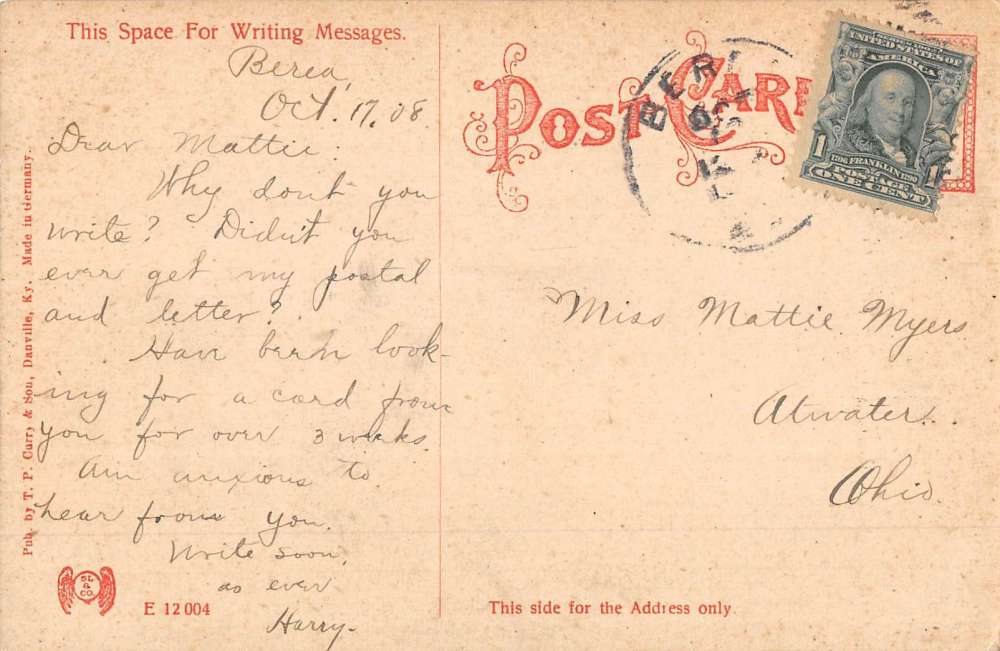 This Space For Writing Messages.
Berea,
Oct. 17, 08
Dear Mattie.
Why dont you
write? Didn't you
ever get my postal
and letter?
Have been look-
ing for a card from
you for over 3 weeks.
Am anxious to
hear from you.
Write soon,
as ever
Harry-
Pub. by T. P. Curry & Son, Danville, Ky. Made in Germany.
SL & CO.
E 12 004
POST CARD
BER
OCT
SERIES 1902
UNITED STATES OF
AMERICA
1706 FRANKLIN 1790
1 POSTAGE 1
ONE CENT
Miss Mattie Myers
Atwater.
Ohio.
This side for the Address only.